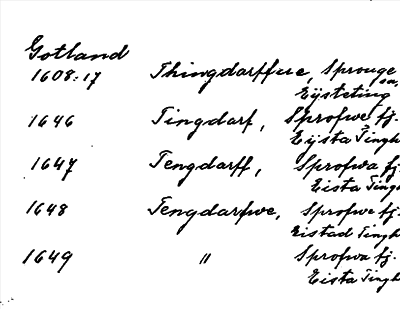 Gotland
1608:17 Thingdarffue, Sprouge
sn,
Eijsteting
1646 Tingdarf, Sprofwe fj.
Eijsta Tingh
1647 Tengdarff, Sprofwa fj.
Eista Tingh
1648 Tengdarfwe, Sprofwe fj.
Eistad Tingh
1649 " Sprofwa fj.
Eista Tingh